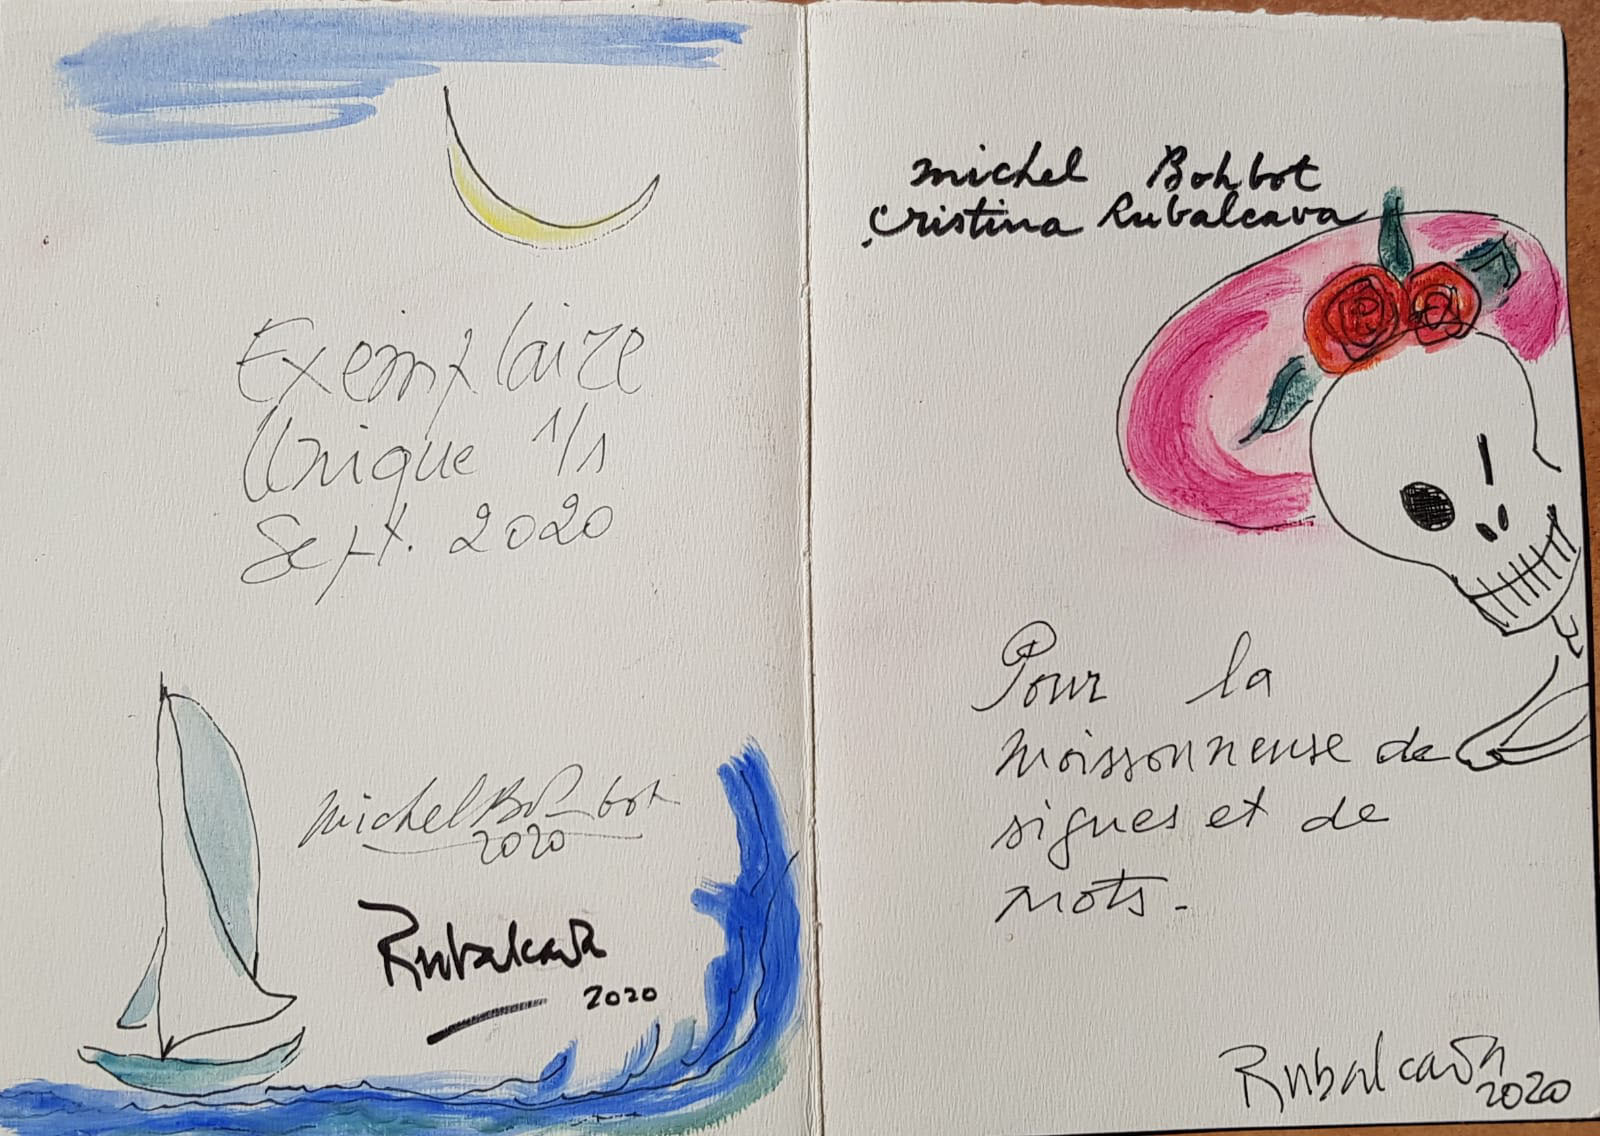 Exemplaire
Unique 1/1
Sept. 2020
Michel Bohbot
2020
Rubalcava
2020
michel Bohbot
Cristina Rubalcava
Pour la
moissonneuse de
signes et de
mots.
Rubalcava
2020